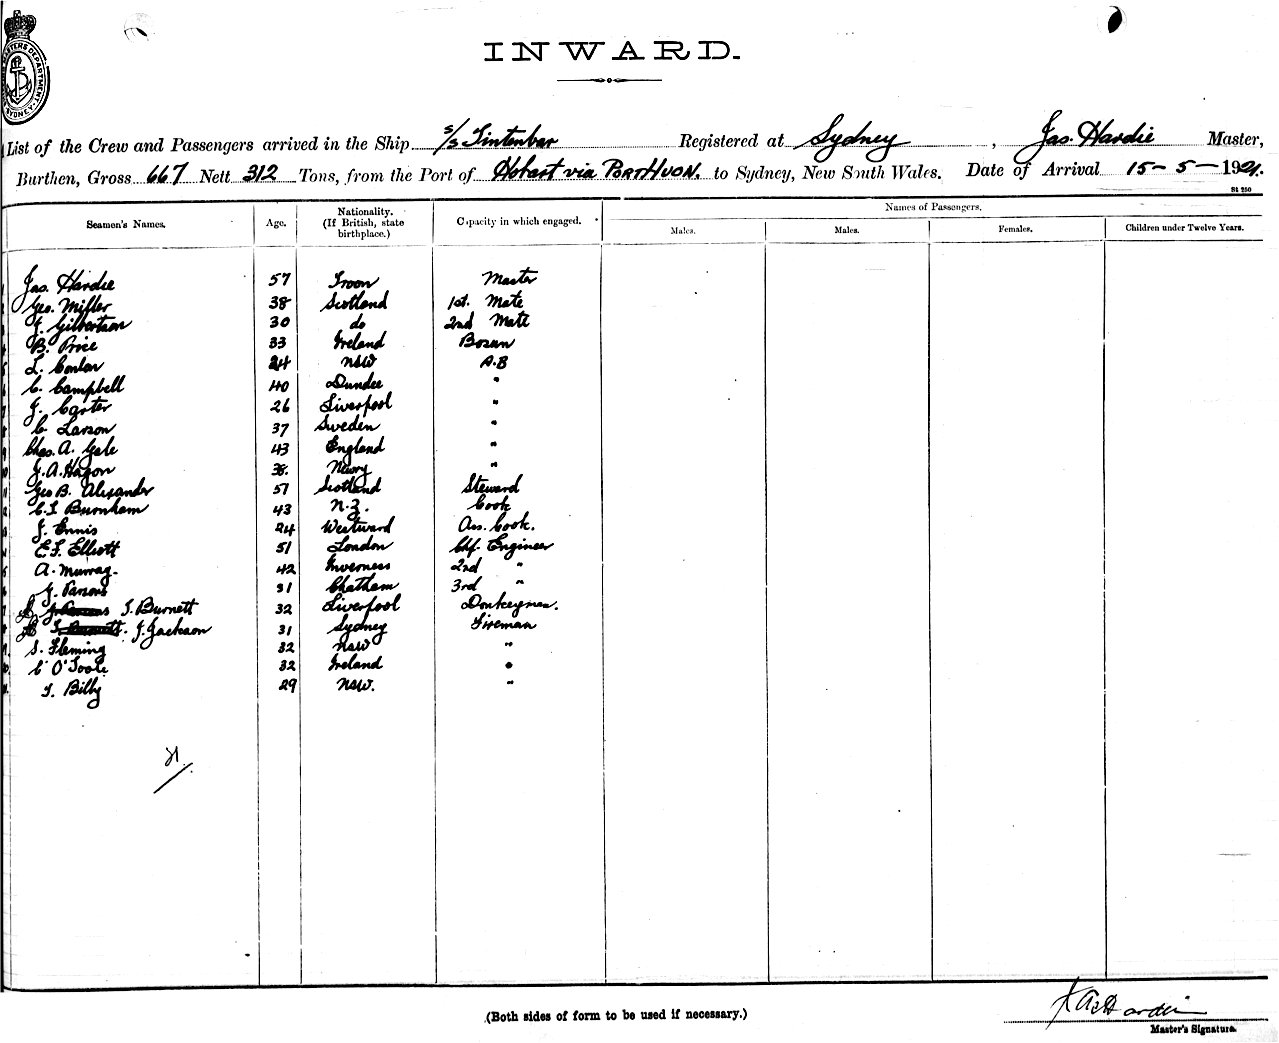 INWARD.
List of the Crew and Passengers arrived in the Ship s/s Tintenbar Registered at Sydney, Jas. Hardie Master,
Burthen, Gross 667 Nett 312 Tons, from the Port of Hobart via Port Huon. to Sydney, New South Wales. Date of Arrival 15-5-1921.
St 250
Seamen's Names. Age. Nationality. (If British, state birthplace.) Capacity in which engaged. Names of Passengers.
Males. Males. Females. Children under Twelve Years.
Jas. Hardie 57 Troon Master
Geo. Miller 38 Scotland 1st. Mate
J. Gilbertson 30 do 2nd Mate
B. Price 33 Ireland Bosun
L. Conlon 24 NSW A.B
C. Campbell 40 Dundee "
J. Carter 26 Liverpool "
C. Larson 37 Sweden "
Chas. A. Gale 43 England "
J. A. Hagon 38. Newry "
Geo B. Alexander 57 Scotland Steward
C. S Burnham 43 N.Z. Cook
J. Ennis 24 Westward Ass. Cook.
E. J. Elliott 51 London Chf. Engineer
A. Murray. 42 Inverness 2nd "
J. Parsons 31 Chatham 3rd "
T. Burnett 32 Liverpool Donkeyman.
J. Jackson 31 Sydney Fireman
S. Fleming 32 NSW "
C O'Toole 32 Ireland "
T. Billy 29 NSW. "
21
(Both sides of form to be used if necessary.)
Jas Hardie
Master's Signature.